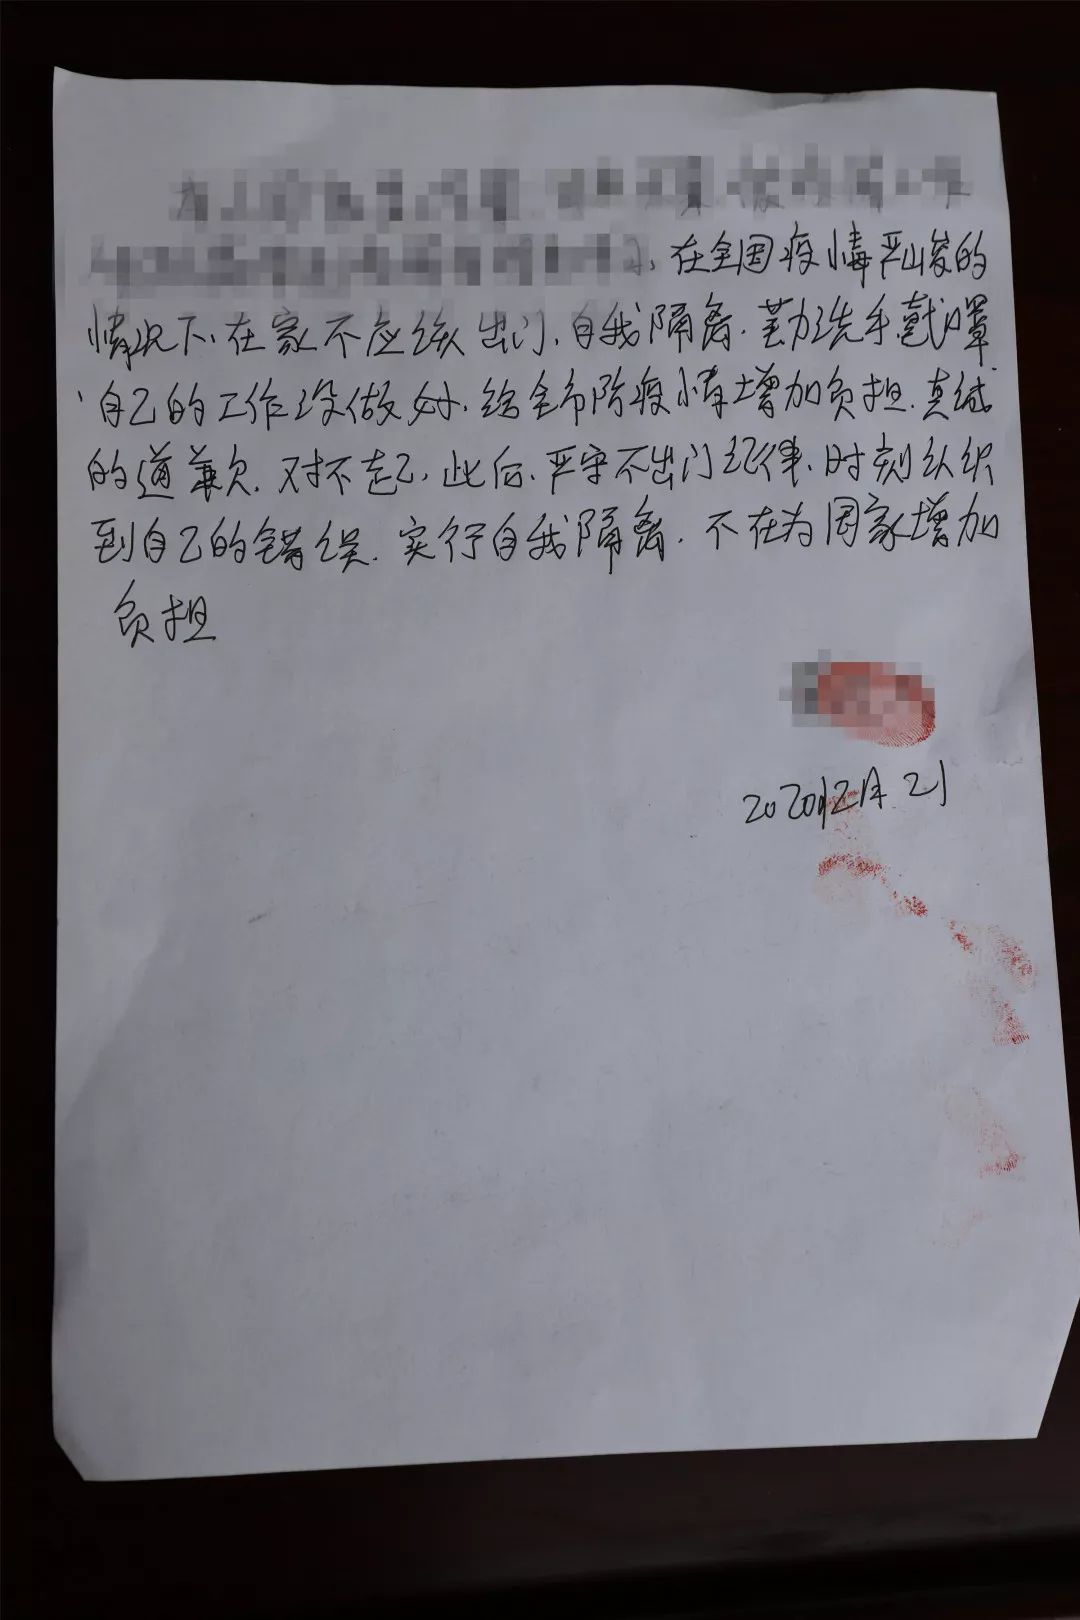 在全国疫情严峻的
情况下、在家不应该出门、自我隔离.勤洗手戴罩
自己的工作没做好、给全市防疫情增加负担.真诚
的道兼欠.对不起、此后、严守不出门纪律、时刻认织
到自己的错误.实行自我隔离.不在为国家增加
负担
2020年2月21